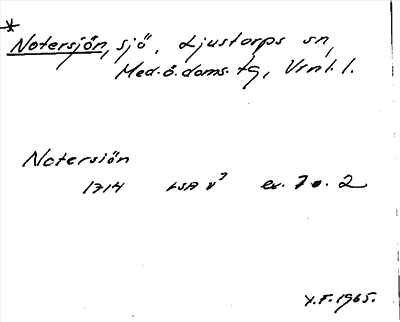 *
Notersjön, sjö, Ljustorps sn,
Med.ö.doms.tg, Vrnl. l.
Notersiön
1714 LSA v³ ev. 70. 2
Y.F. 1965.